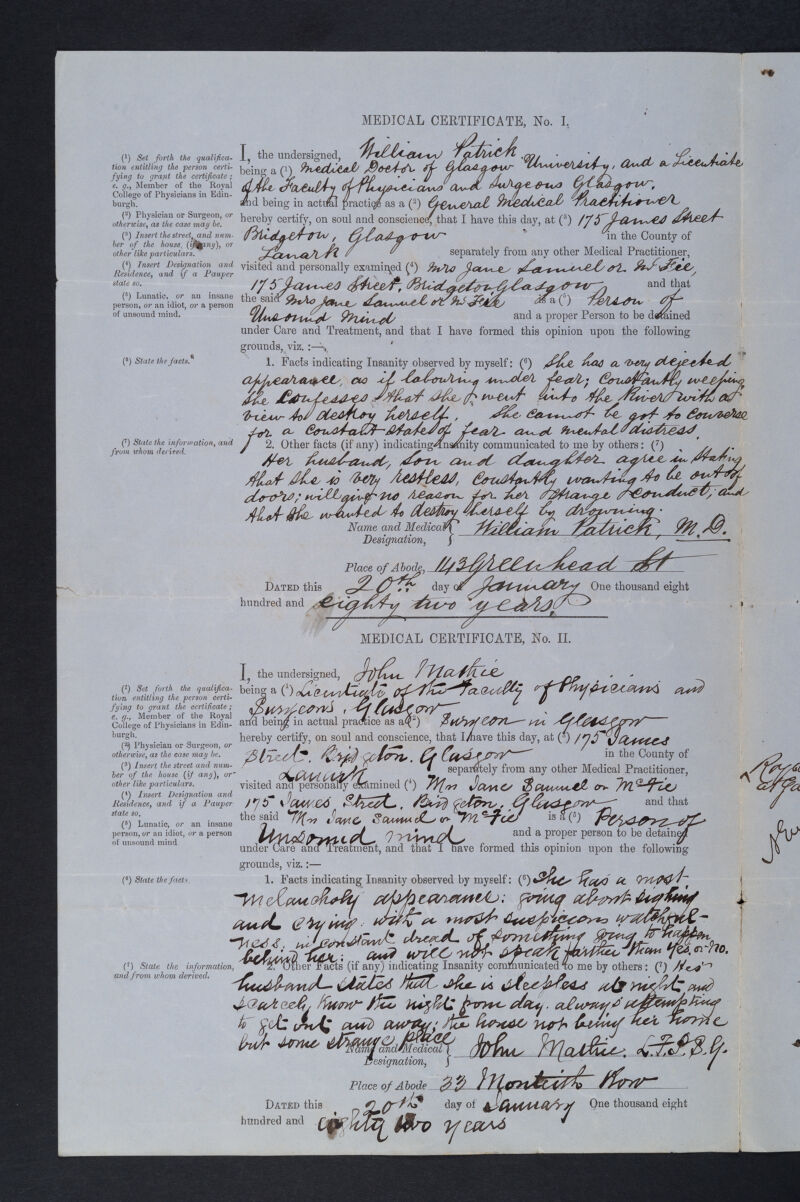 MEDICAL CERTIFICATE, No. I.
(¹) Set forth the qualifica-
tion entitling the person certi-
fying to grant the certificate;
e. g., Member of the Royal
College of Physicians in Edin-
burgh.
(²) Physician or Surgeon, or
otherwise, as the case may be.
(³) Insert the street, and num-
ber of the house (if any), or
other like particulars.
(⁴) Insert Designation and
Residence, and if a Pauper
state so.
(⁵) Lunatic, or an insane
person, or an idiot, or a person
of unsound mind.
(⁶) State the facts.
(⁷) State the information, and
from whom derived.
I, the undersigned, William Patrick
being a (¹) Medical Doctor of Glasgow University, and a Licentiate
of the Faculty of Physicians and Surgeons Glasgow.
and being in actual practice as a (²) General Medical Practitioner
hereby certify, on soul and conscience, that I have this day, at (³) 175 James Street
Bridgeton, Glasgow in the County of
Lanark separately from any other Medical Practitioner,
visited and personally examined (⁴) Mrs Jane Samuel or McFie,
175 James Street, Bridgeton, Glasgow and that
the said Mrs Jane Samuel or McFie is a (⁵) Person of
Unsound Mind and a proper Person to be detained
under Care and Treatment, and that I have formed this opinion upon the following
grounds, viz. :—
1. Facts indicating Insanity observed by myself: (⁶) She has a very dejected
appearance, as if labouring under fear; Constantly weeping
She Confesses that she went into the River with a
view to destroy herself. She cannot be got to converse
for a constant state of fear and mental distress.
2. Other facts (if any) indicating Insanity communicated to me by others: (⁷)
Her husband, Son and daughter agree in stating
that she is very restless, Constantly wanting to be out of
doors; will give no reason for her strange conduct; and
that she wanted to destroy herself by drowning.
Name and Medical
Designation, William Patrick, M.D.
Place of Abode, 143 Greenhead St
DATED this 20th day of January One thousand eight
hundred and eighty two years.
MEDICAL CERTIFICATE, No. II.
(¹) Set forth the qualifica-
tion entitling the person certi-
fying to grant the certificate;
e. g., Member of the Royal
College of Physicians in Edin-
burgh.
(²) Physician or Surgeon, or
otherwise, as the case may be.
(³) Insert the street and num-
ber of the house (if any), or
other like particulars.
(⁴) Insert Designation and
Residence, and if a Pauper
state so.
(⁵) Lunatic, or an insane
person, or an idiot, or a person
of unsound mind
(⁶) State the facts.
(⁷) State the information,
and from whom derived.
I, the undersigned, John Mathie
being a (¹) Licentiate of the Faculty of Physicians and
Surgeons. Glasgow
and being in actual practice as a (²) Surgeon in Glasgow
hereby certify, on soul and conscience, that I have this day, at (³) 175 James
Street. Bridgeton. Glasgow in the County of
Lanark separately from any other Medical Practitioner,
visited and personally examined (⁴) Mrs Jane Samuel or McFie
175 James Street. Bridgeton. Glasgow and that
the said Mrs Jane Samuel or McFie is a (⁵) Person of
Unsound mind and a proper person to be detained
under Care and Treatment, and that I have formed this opinion upon the following
grounds, viz. :—
1. Facts indicating Insanity observed by myself: (⁶) She has a most
Melancholy appearance: going about sighing
and crying. with a most suspicious watchful-
ness, in constant dread of something going to happen
behind her: and will not speak farther than Yes. or No.
2. Other Facts (if any) indicating Insanity communicated to me by others: (⁷) Her
husband states that she is sleepless at night and
scarcely know the night from day. always attempting
to get out and away; the house not being her home
but some strange place
Name and Medical
Designation, John Mathie. L.F.P.S.G.
Place of Abode 33 Monteith Row
DATED this 20th day of January One thousand eight
hundred and eighty two years